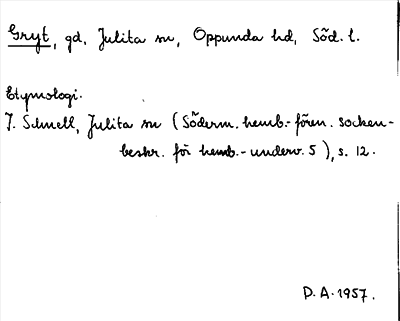 Gryt, gd, Julita sn, Oppunda hd, Söd. l.
Etymologi.
J. Schnell, Julita sn (Söderm. hemb.-fören. socken-
beskr. för hemb.-underv. 5), s. 12.
D.A. 1957.